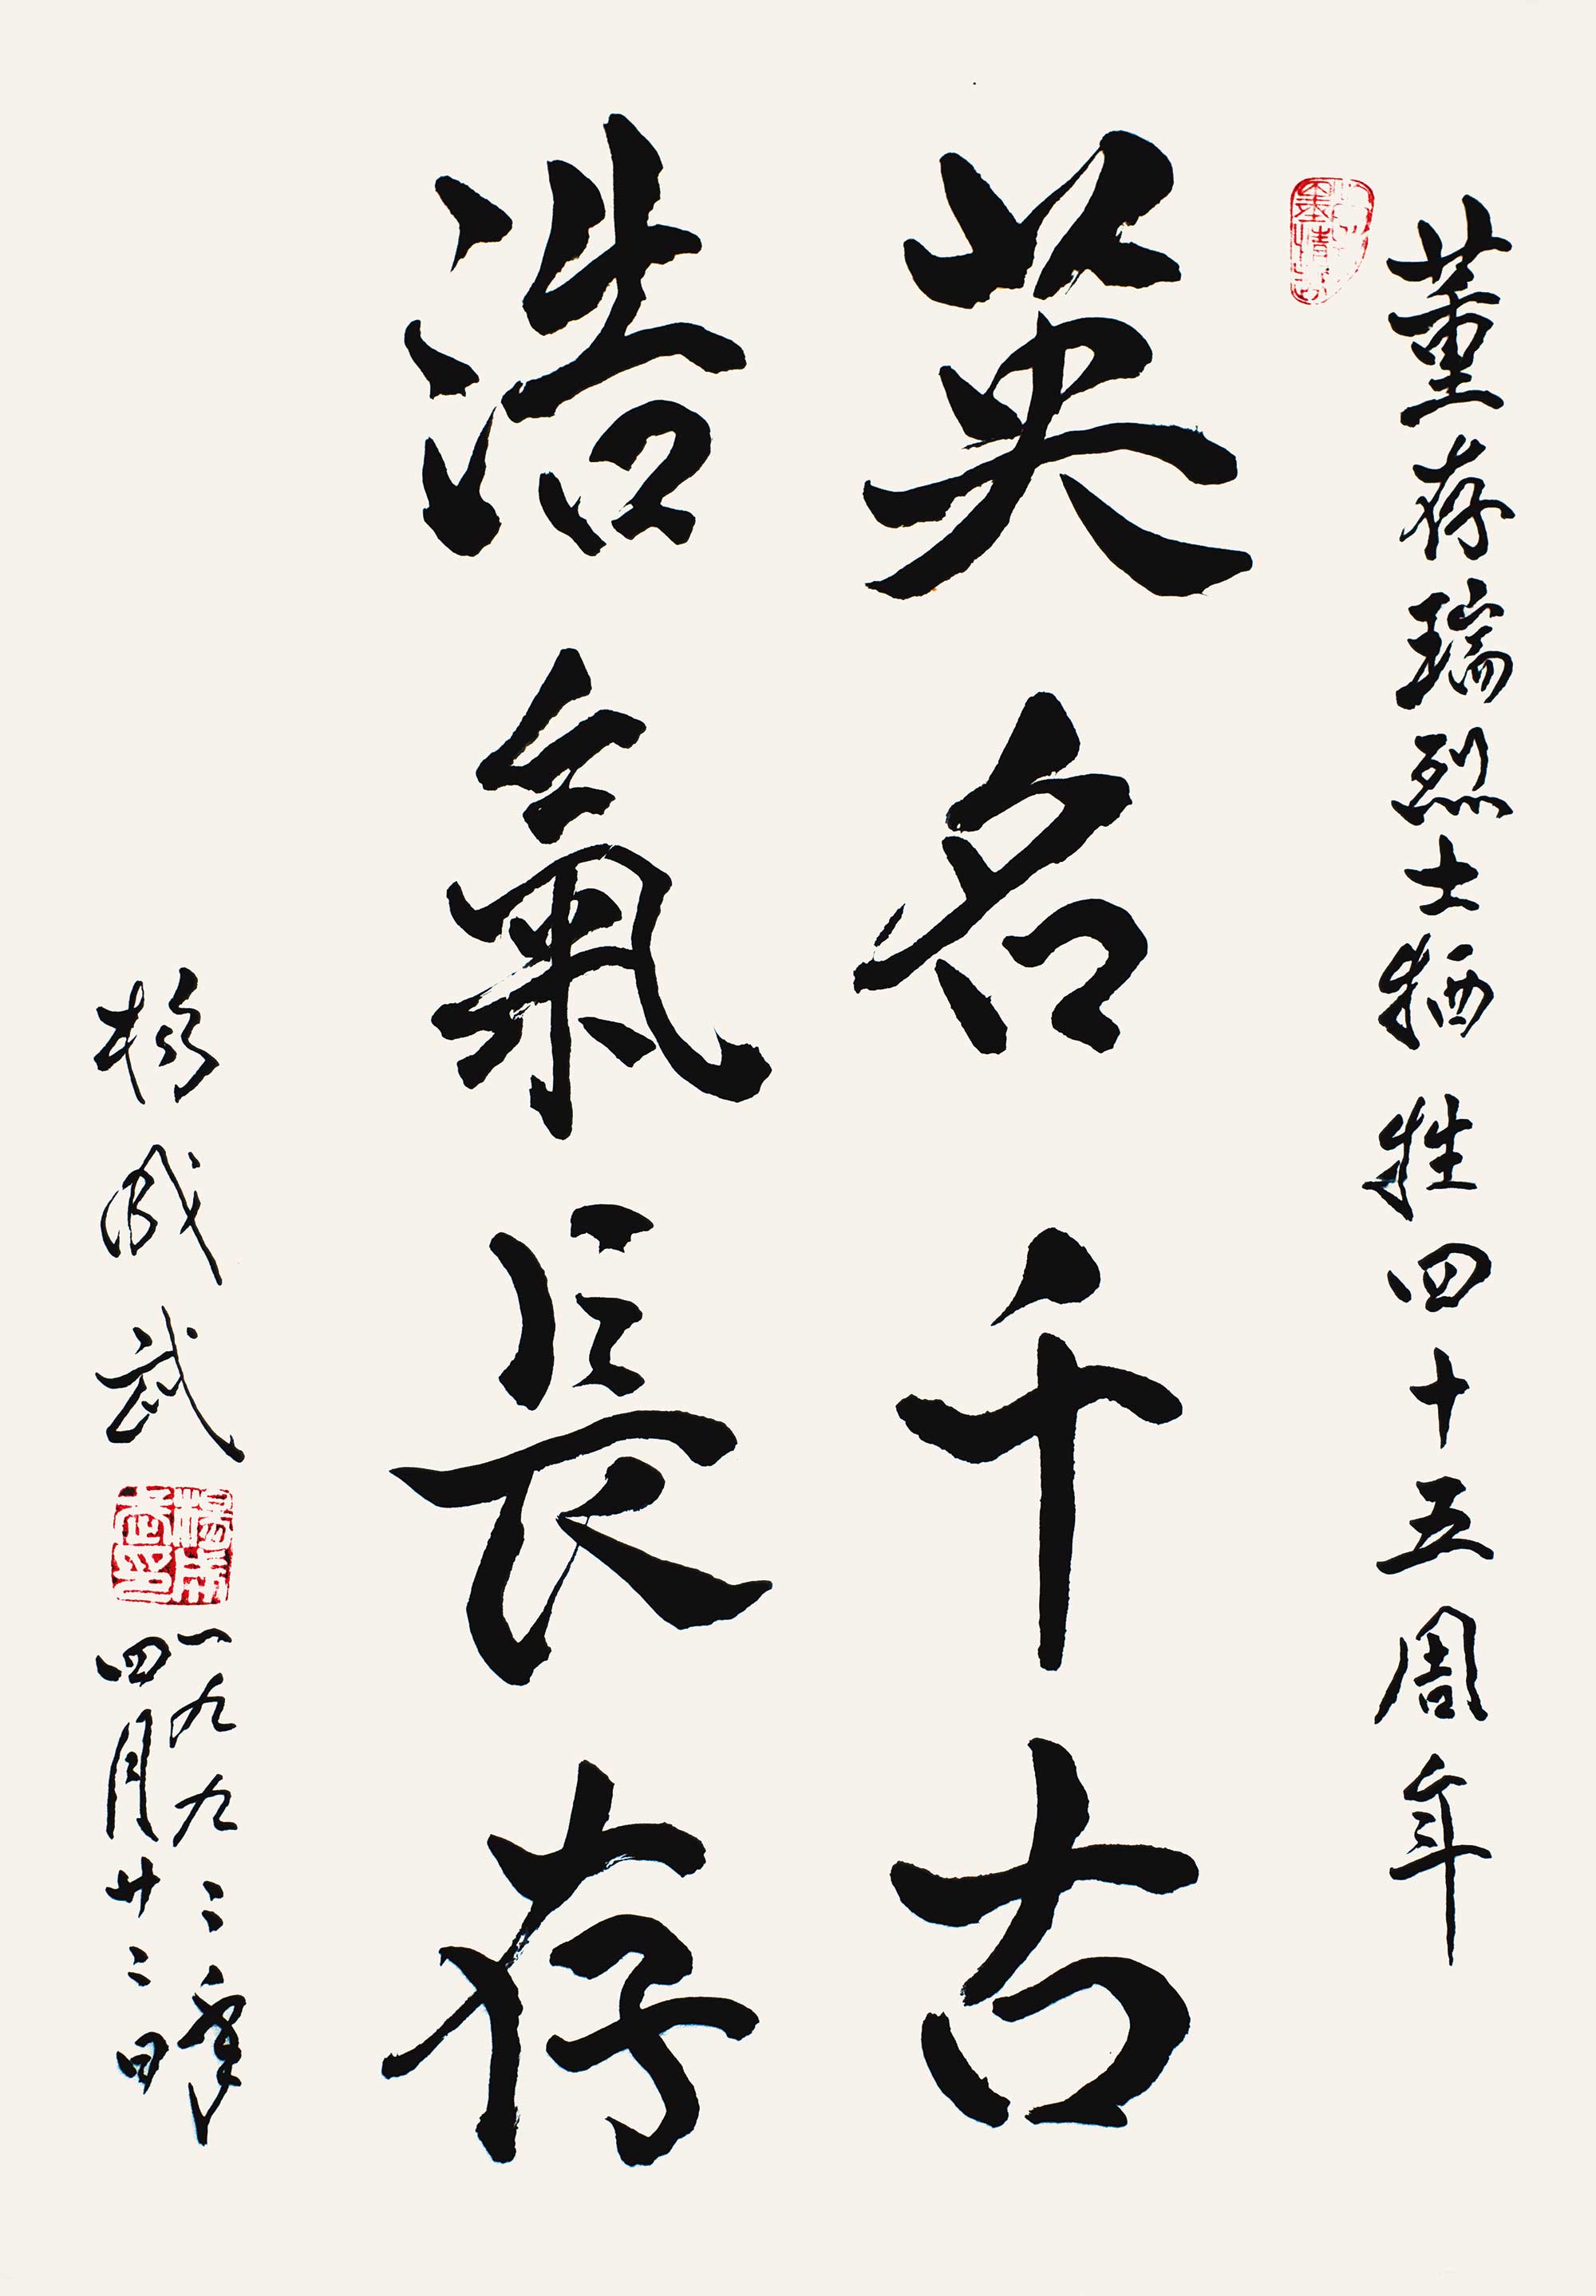 董存瑞烈士牺牲四十五周年
英名千古
浩氣長存
杨成武
一九九三年
四月廿二日